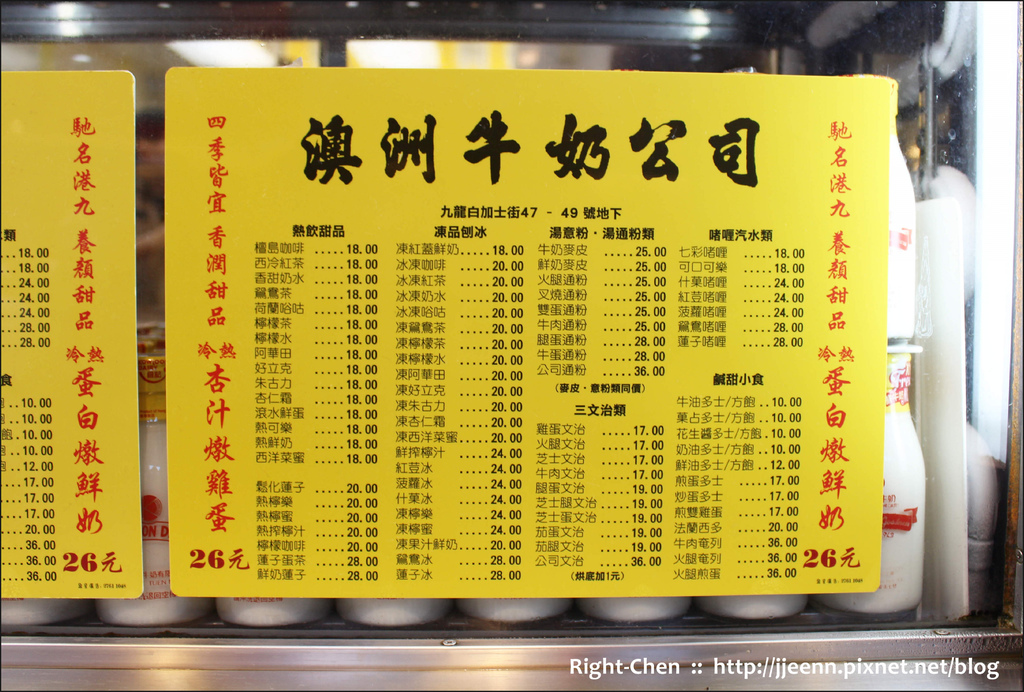 類
18.00
18.00
24.00
24.00
24.00
28.00
28.00
食
飽..10.00
飽..10.00
飽..10.00
飽..10.00
飽..12.00
17.00
17.00
17.00
20.00
36.00
36.00
36.00
馳名港九 養顏甜品
冷熱
蛋白燉鮮奶
26元
四季皆宜 香潤甜品
冷熱
杏汁燉雞蛋
26元
澳洲牛奶公司
九龍白加士街47 - 49 號地下
熱飲甜品
檀島咖啡 .....18.00
西冷紅茶 .....18.00
香甜奶水 .....18.00
鴛鴦茶 .....18.00
荷蘭哈咕 .....18.00
檸檬茶 .....18.00
檸檬水 .....18.00
阿華田 .....18.00
好立克 .....18.00
朱古力 .....18.00
杏仁霜 .....18.00
滾水鮮蛋 .....18.00
熱可樂 .....18.00
熱鮮奶 .....18.00
西洋菜蜜 .....18.00
鬆化蓮子 .....20.00
熱檸樂 .....20.00
熱檸蜜 .....20.00
熱搾檸汁 .....20.00
檸檬咖啡 .....20.00
蓮子蛋茶 .....28.00
鮮奶蓮子 .....28.00
凍品刨冰
凍紅蓋鮮奶.....18.00
冰凍咖啡 .....20.00
冰凍紅茶 .....20.00
冰凍奶水 .....20.00
冰凍哈咕 .....20.00
凍鴛鴦茶 .....20.00
凍檸檬茶 .....20.00
凍檸檬水 .....20.00
凍阿華田 .....20.00
凍好立克 .....20.00
凍朱古力 .....20.00
凍杏仁霜 .....20.00
凍西洋菜蜜.....20.00
鮮搾檸汁 .....24.00
紅荳冰 .....24.00
菠蘿冰 .....24.00
什菓冰 .....24.00
凍檸樂 .....24.00
凍檸蜜 .....24.00
凍果汁鮮奶.....20.00
鴛鴦冰 .....28.00
蓮子冰 .....28.00
湯意粉‧湯通粉類
牛奶麥皮 .....25.00
鮮奶麥皮 .....25.00
火腿通粉 .....25.00
叉燒通粉 .....25.00
雙蛋通粉 .....25.00
牛肉通粉 .....25.00
腿蛋通粉 .....28.00
牛蛋通粉 .....28.00
公司通粉 .....36.00
（麥皮‧意粉類同價）
三文治類
雞蛋文治 .....17.00
火腿文治 .....17.00
芝士文治 .....17.00
牛肉文治 .....17.00
腿蛋文治 .....19.00
芝士腿文治 .....19.00
芝士蛋文治 .....19.00
茄蛋文治 .....19.00
茄腿文治 .....19.00
公司文治 .....36.00
（烘底加1元）
啫喱汽水類
七彩啫喱 .....18.00
可口可樂 .....18.00
什菓啫喱 .....24.00
紅荳啫喱 .....24.00
菠蘿啫喱 .....24.00
鴛鴦啫喱 .....28.00
蓮子啫喱 .....28.00
鹹甜小食
牛油多士/方飽..10.00
菓占多士/方飽..10.00
花生醬多士/方飽..10.00
奶油多士/方飽..10.00
鮮油多士/方飽..12.00
煎蛋多士 .....17.00
炒蛋多士 .....17.00
煎雙雞蛋 .....17.00
法蘭西多 .....20.00
牛肉奄列 .....36.00
火腿奄列 .....36.00
火腿煎蛋 .....36.00
馳名港九 養顏甜品
冷熱
蛋白燉鮮奶
26元
Right-Chen :: http://jjeenn.pixnet.net/blog